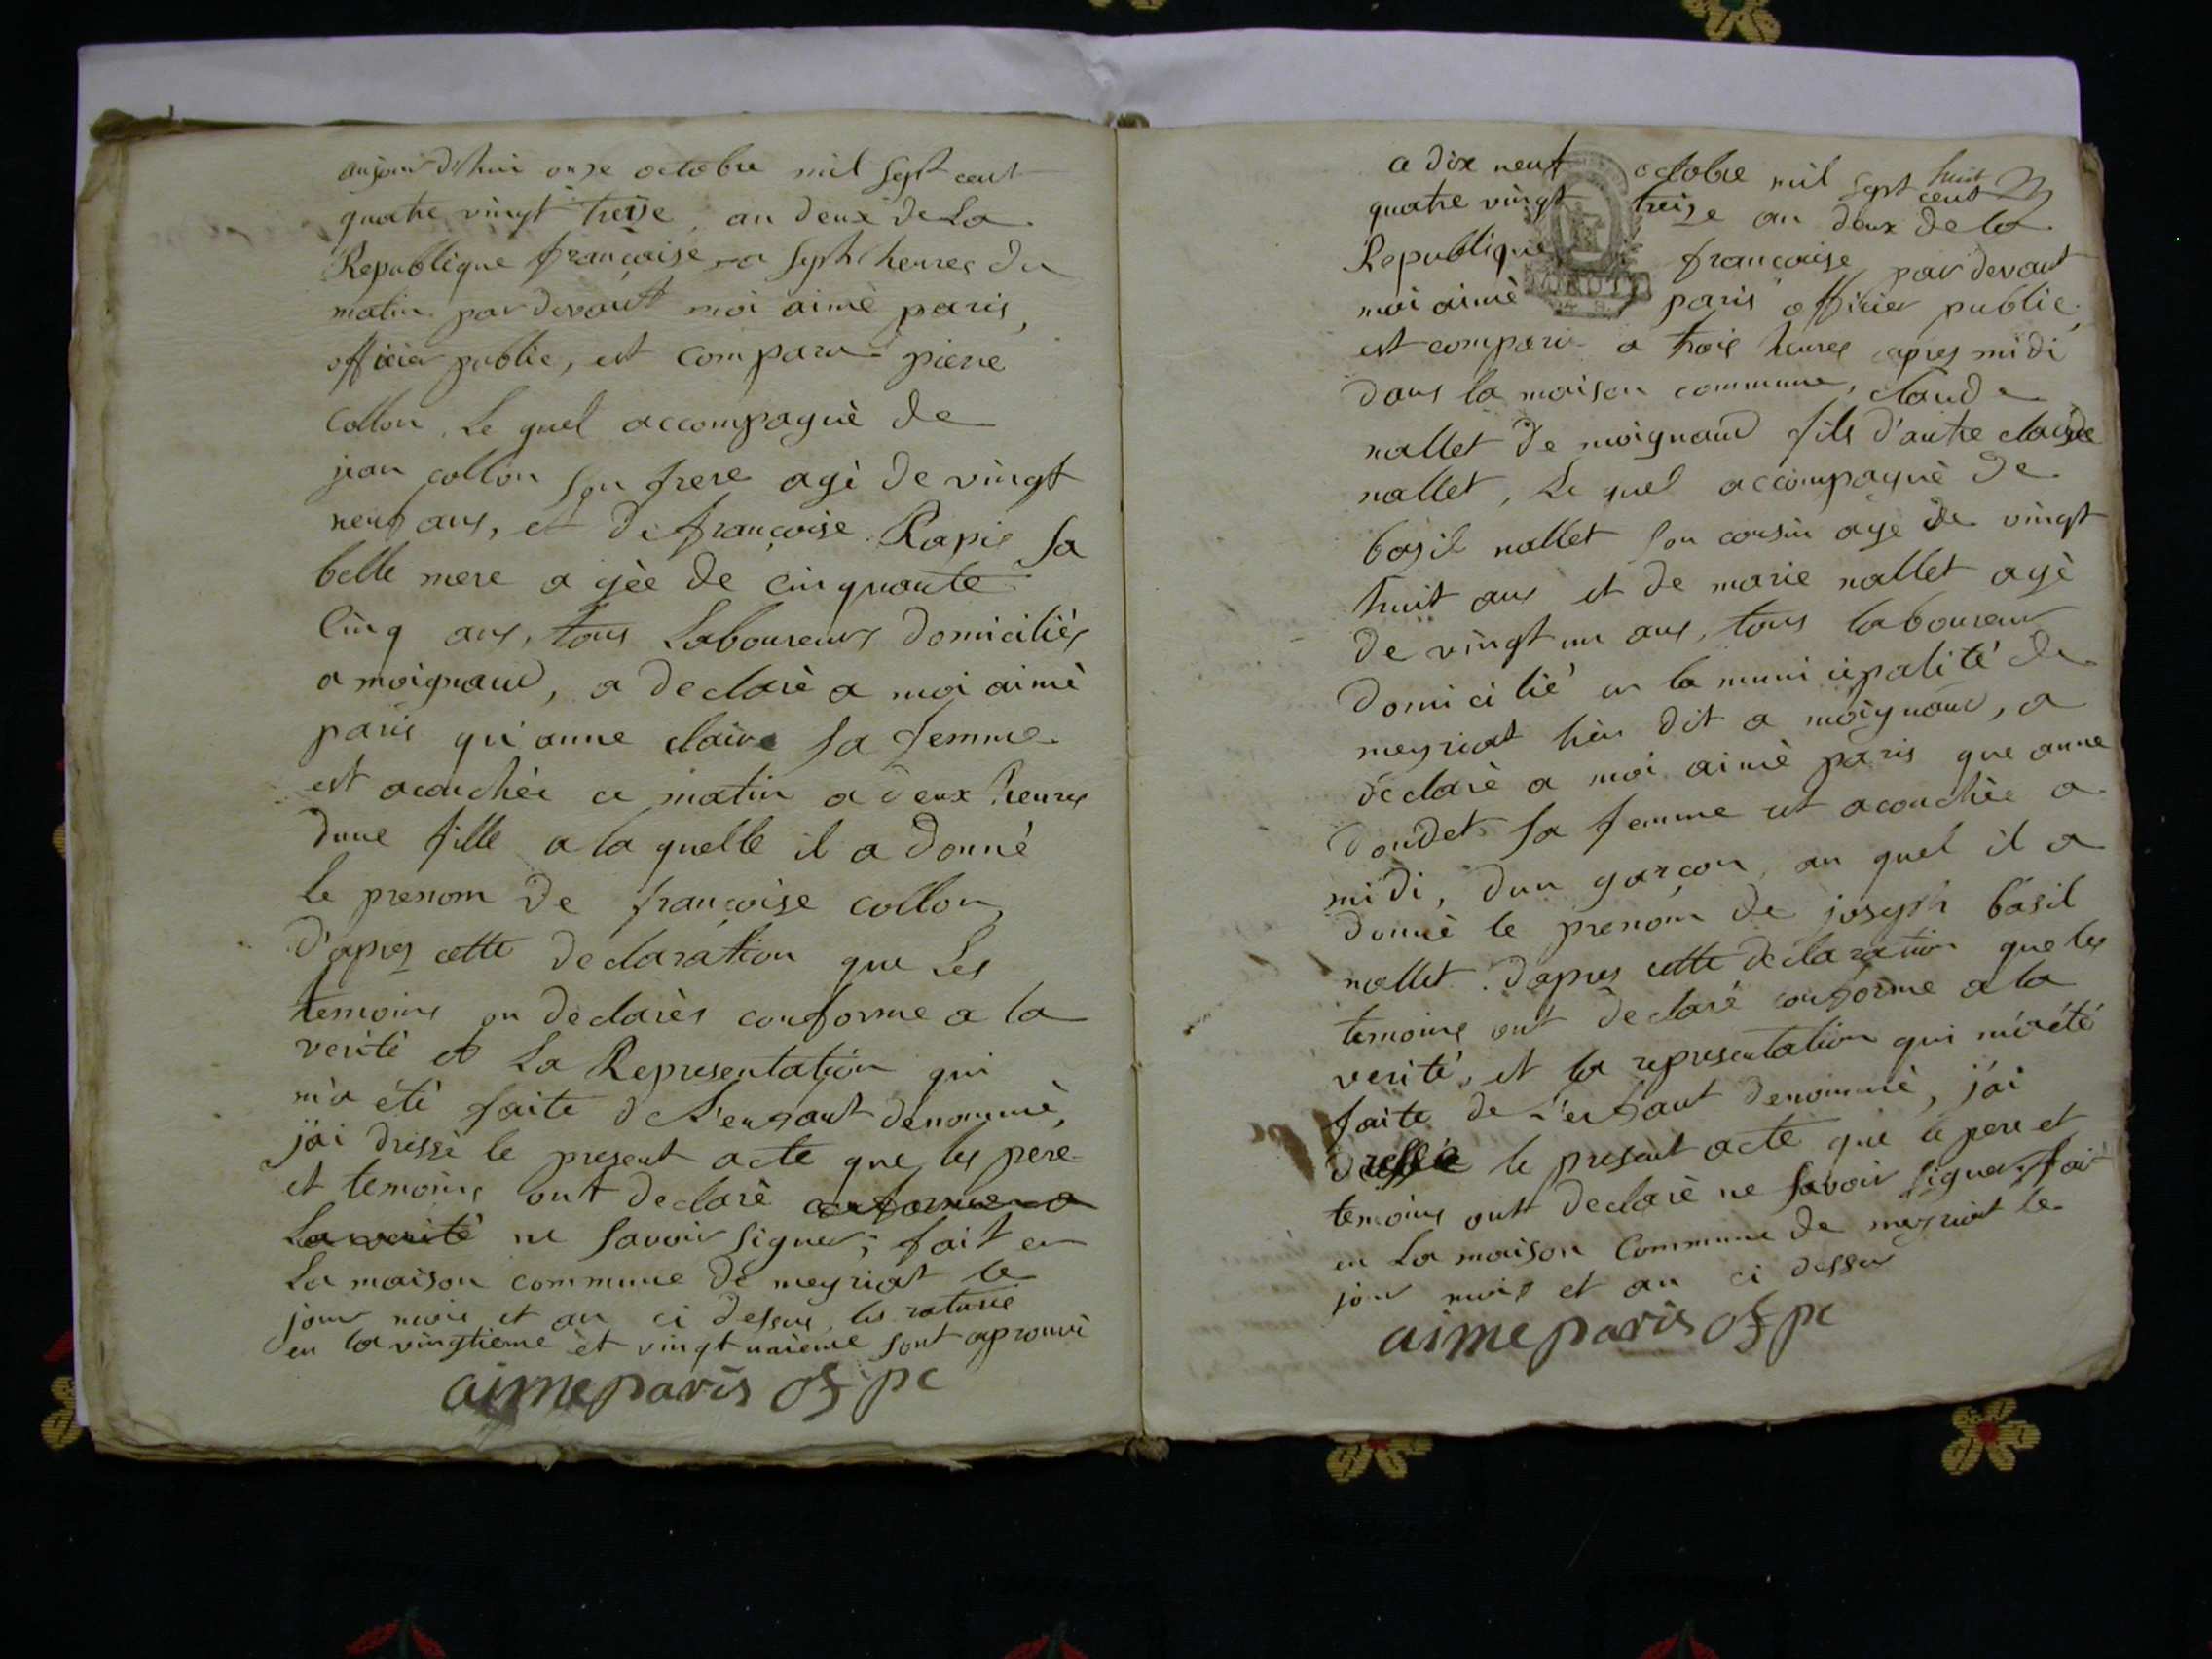 aujourd'hui onze octobre mil sept cent
quatre vingt treise an deux de La
Republique françoise a sept heures du
matin par devant moi aimè paris,
officier public, est comparu pierre
collon, Le quel accompagnè de
jean collon son frere agè de vingt
neuf ans, et de françoise Rapie sa
belle mere agèe de cinquante
cinq ans, tous Laboureurs domiciliès
a moignaud, a declarè a moi aimè
paris qu'anne claire sa femme
est acouchèe ce matin a deux heures
dune fille a la quelle il a donnè
le prenom de françoise collon,
D'apres cette declaration que Les
temoins on dèclarès conforme a la
veritè et La Representation qui
m'a étè faite de L'enfant dènommè,
j'ai dressè le present acte que les pere
et temoins ont declarè conforme a
La verité ne savoir signer; fait en
La maison commune de meyriat le
jour mois et an ci dessus, les raturè
en la vingtieme èt vingt unième sont aprouvè
aimeparis off pc
ce dix neuf octobre mil sept cent
huit
quatre vingt treize an deux de la
Republique françoise par devant
moi aimè paris officier public,
est comparu a trois heures apres midi
dans la maison commune, claude
nallet de moignaud fils d'autre claude
nallet, Le quel accompagnè de
basil nallet son cousin agè de vingt
huit ans et de marie nallet agè
de vingt un ans, tous laboureur
domicilié en la municipalité de
meyriat lieu dit a moignaud, a
dèclarè a moi aimè paris que anne
doudet sa femme est acouchèe a
midi, dun garçon, au quel il a
donnè le prenom de joseph basil
nallet. d'apres cette declaration que les
temoins ont declaré conforme a la
verité, et la representation qui m'a été
faite de L'enfant denommè, j'ai
dressé le present acte que le pere et
temoins ont declarè ne savoir signer, fait
en La maison Commune de meyriat le
jour mois et an ci dessus
aimeparis off pc